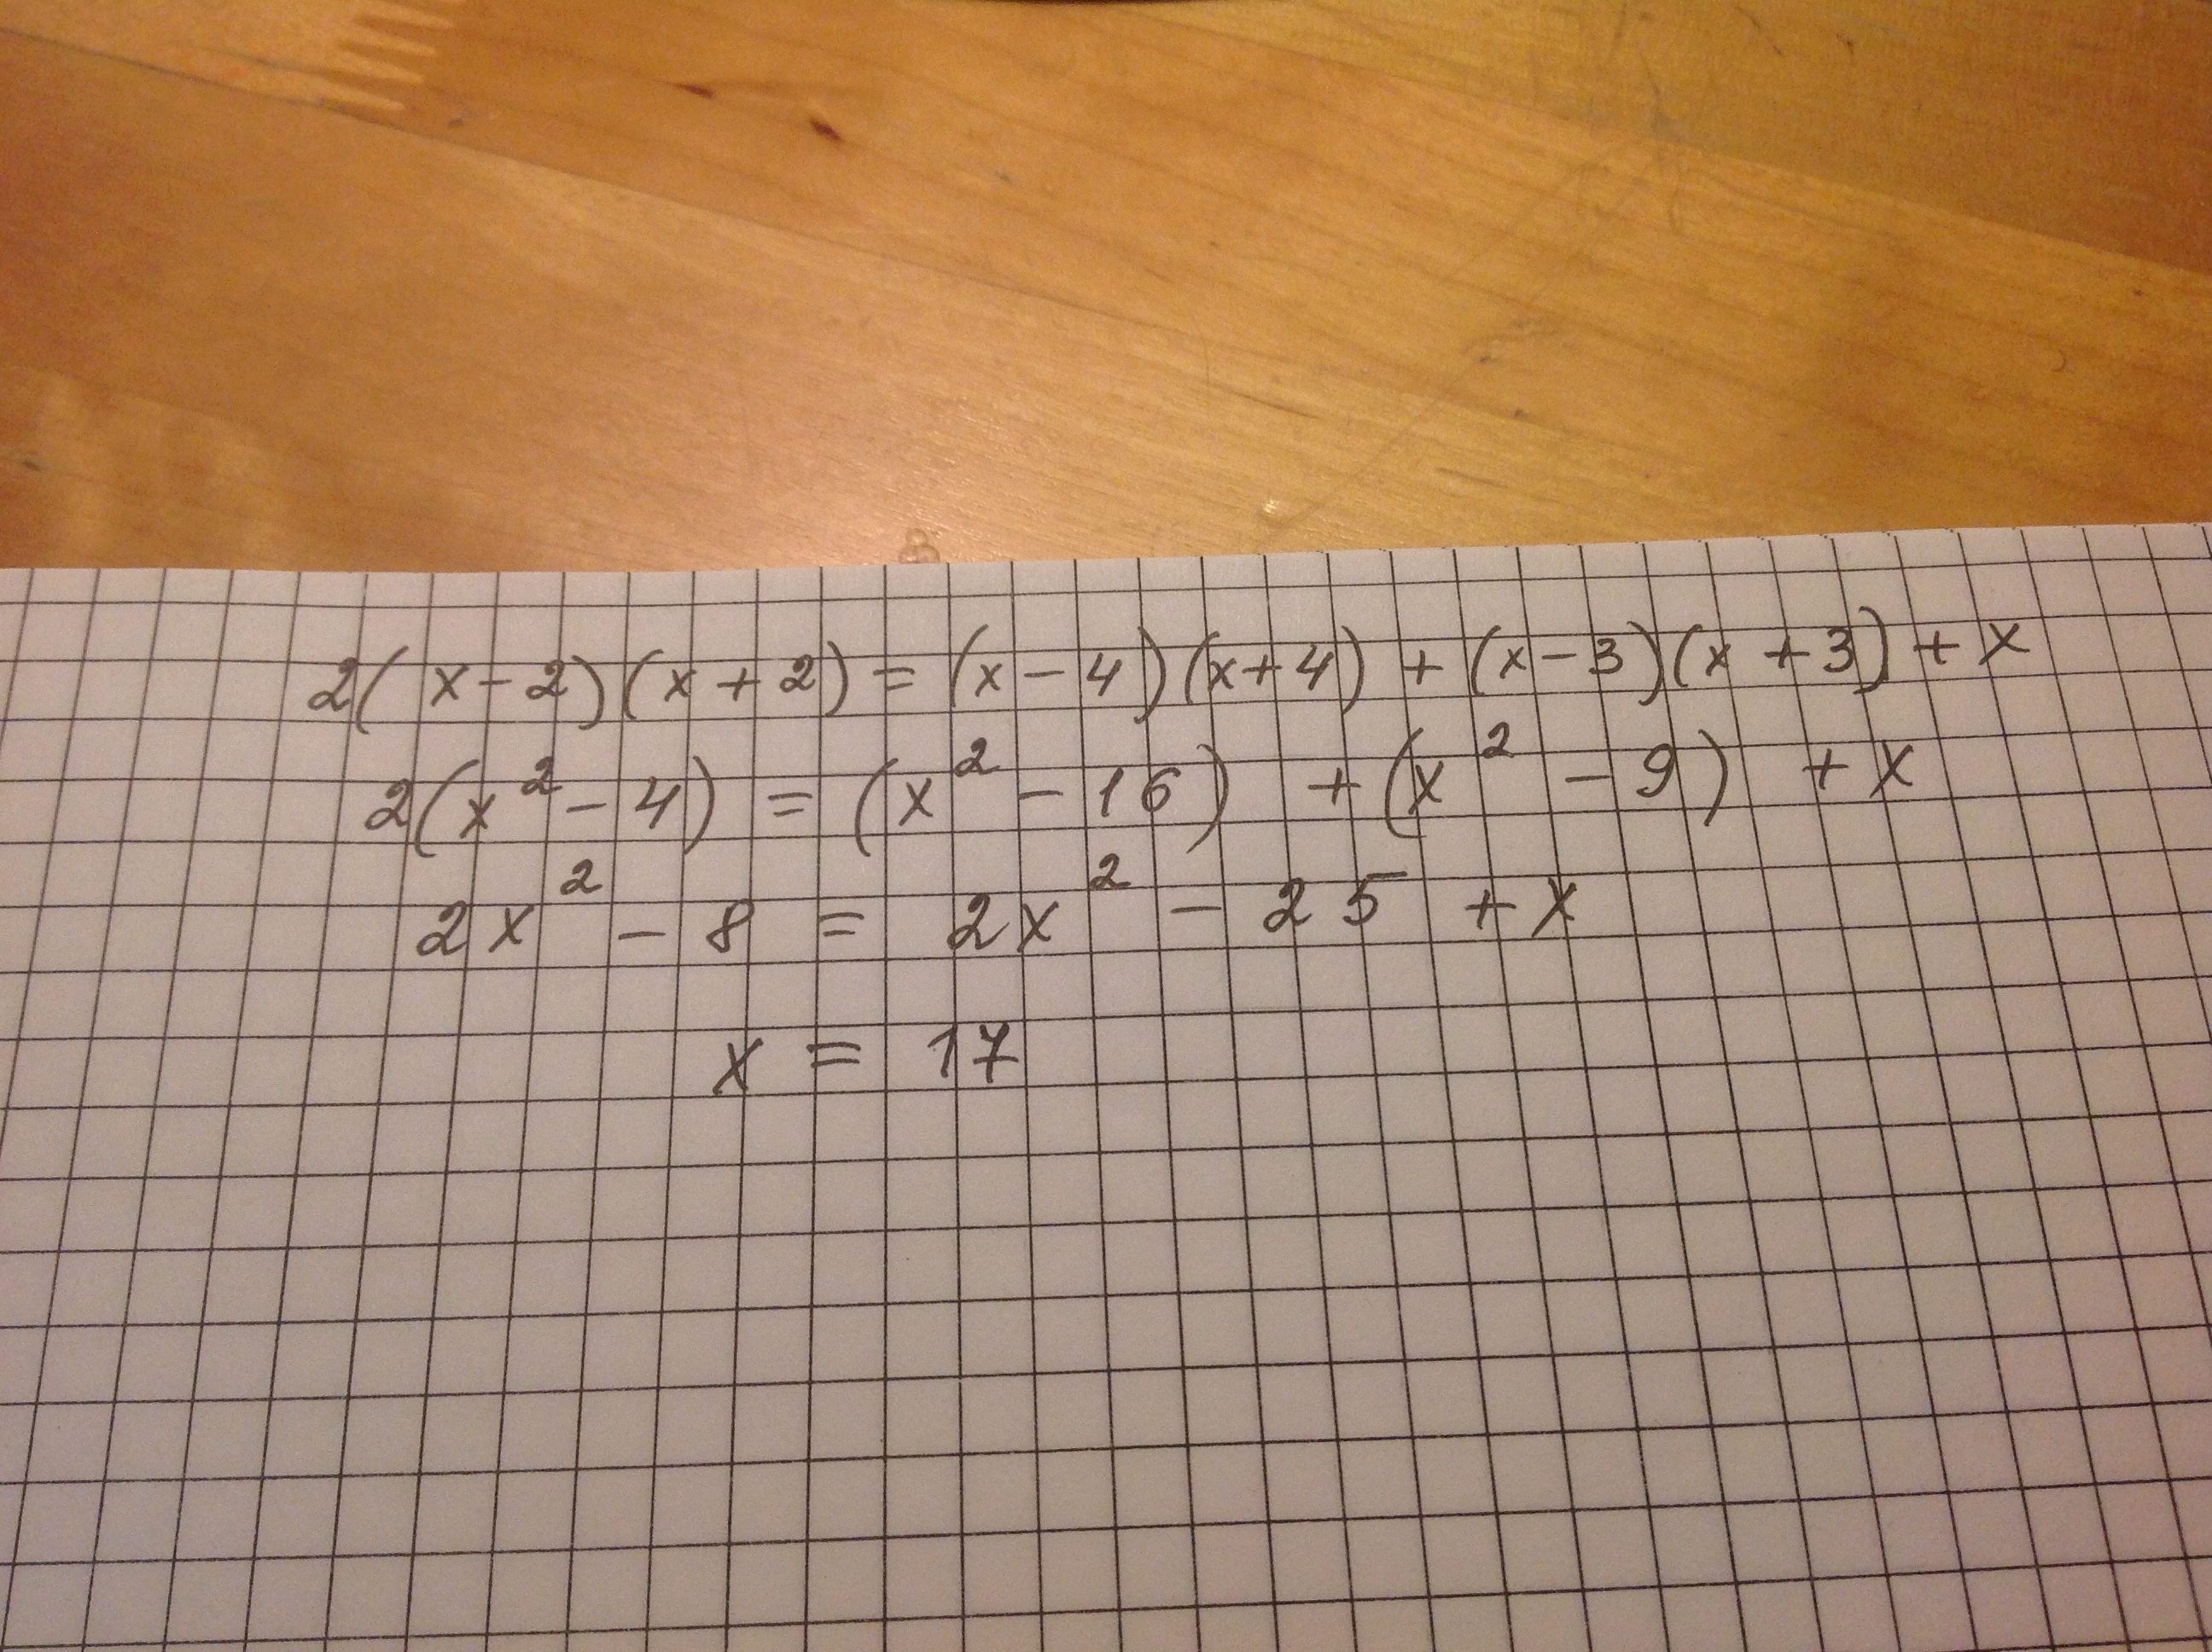 2(x-2)(x+2) = (x-4)(x+4) + (x-3)(x+3) + x
2(x² - 4) = (x² - 16) + (x² - 9) + x
2x² - 8 = 2x² - 25 + x
x = 17